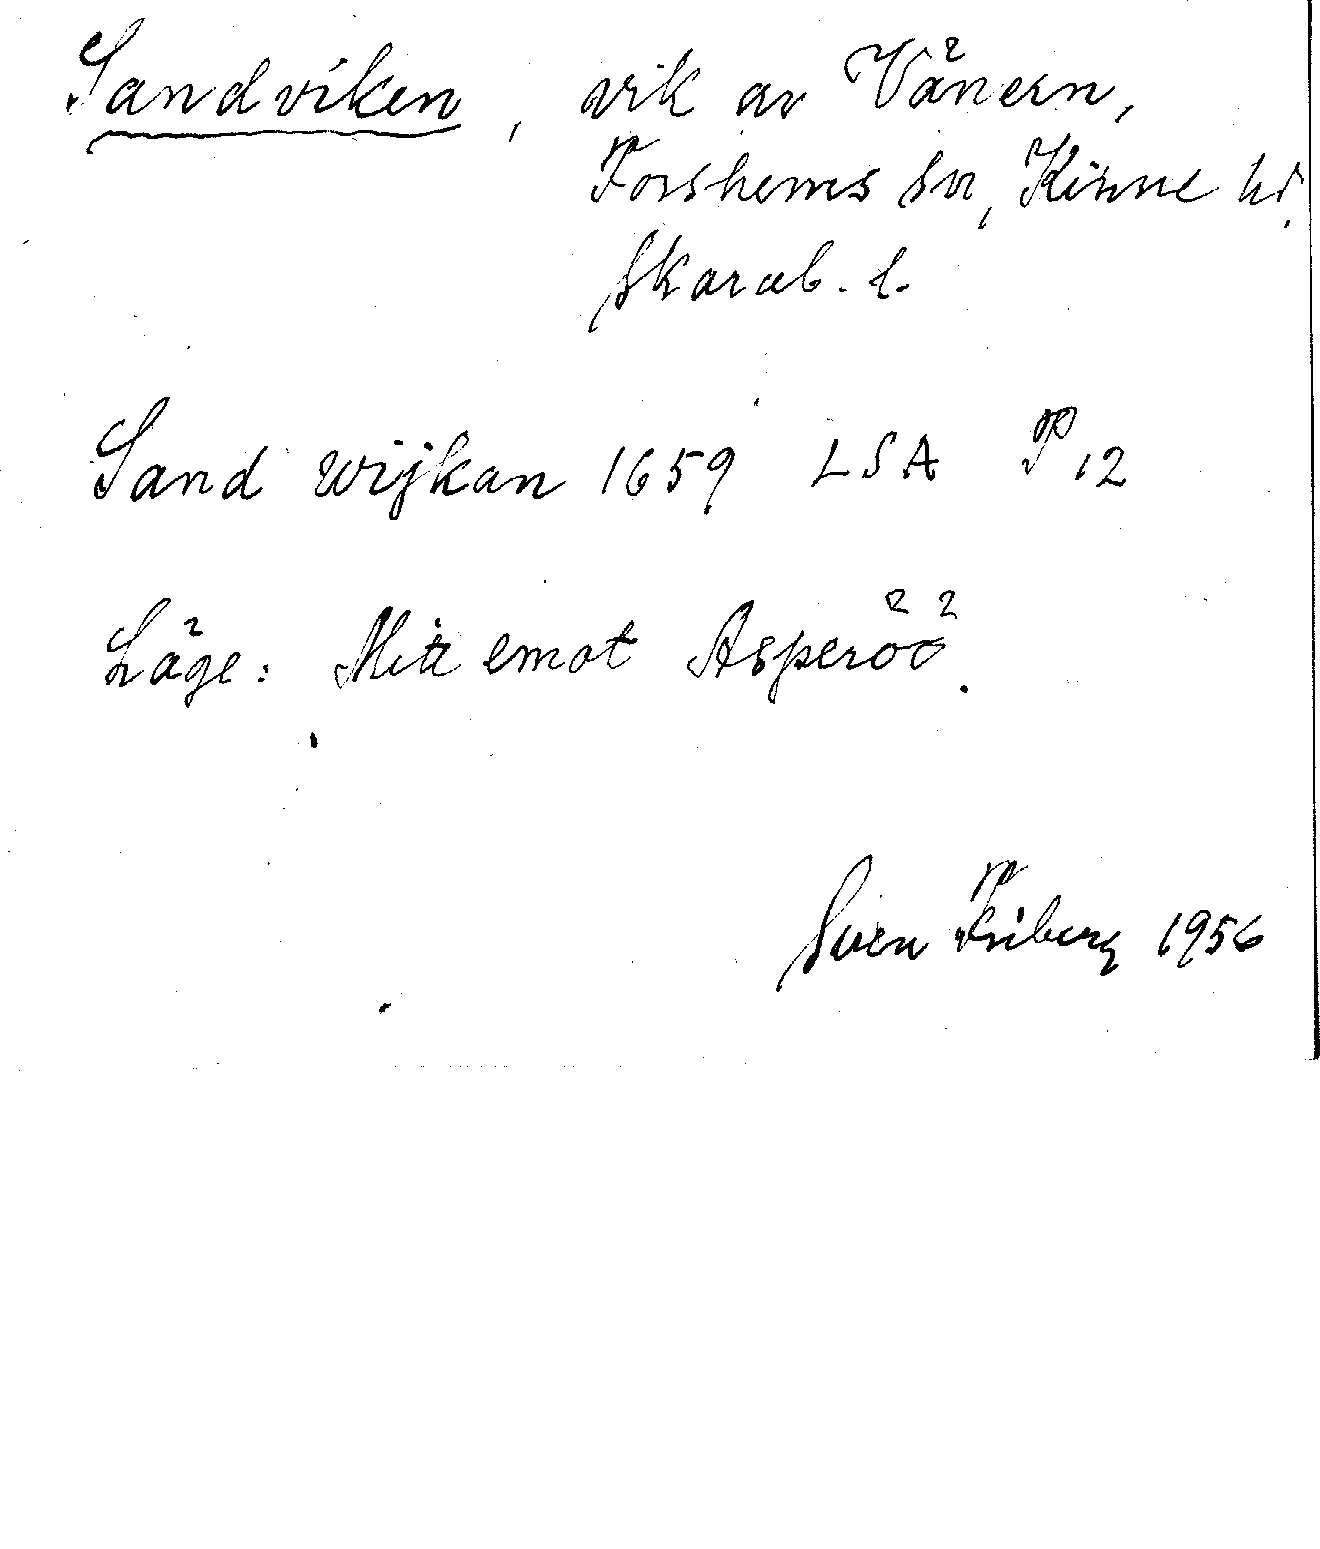 Sandviken, vik av Vänern,
Forshems sn, Kinne hd,
Skarab. l.
Sand wijkan 1659 LSA P 12
Läge: Mitt emot Asperöö.
Sven Friberg 1956